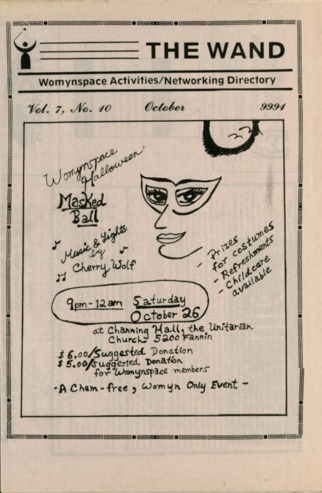 THE WAND
Womynspace Activities/Networking Directory
Vol. 7, No. 10 October 9991
Womynspace
Halloween
Masked
Ball
Music & Lights
by
Cherry Wolf
- Prizes
for costumes
- Refreshments
- Childcare
available
9pm-12am Saturday
October 26
at Channing Hall, the Unitarian
Church 5200 Fannin
$6.00/Suggested Donation
$5.00/Suggested Donation
for Womynspace members
-A Chem-free, Womyn Only Event-